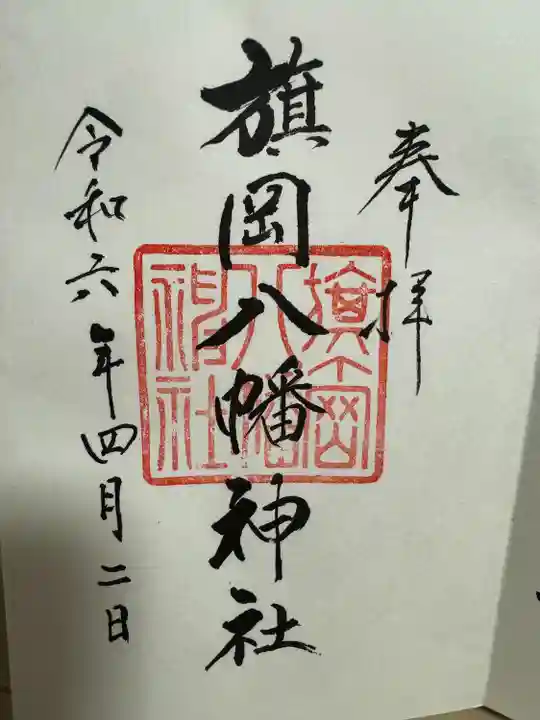 奉拝
旗岡八幡神社
旗岡八幡神社
令和六年四月二日